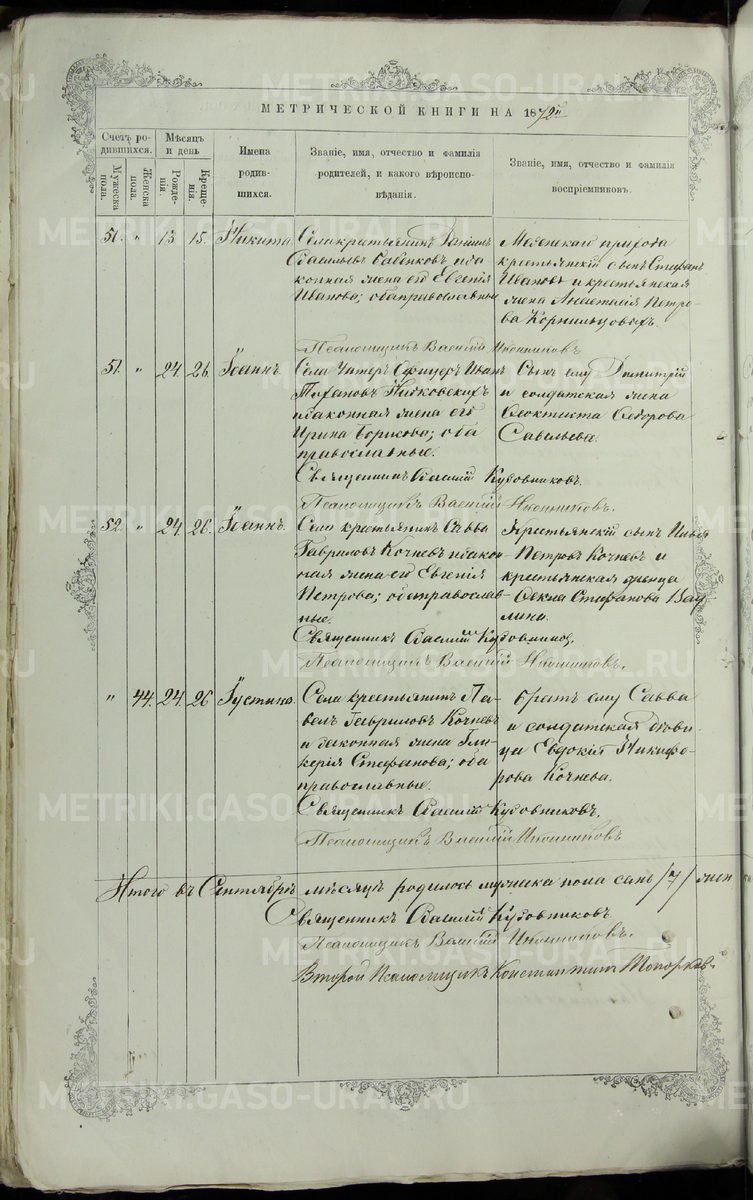 МЕТРИЧЕСКОЙ КНИГИ НА 1872й
Счетъ родившихся.
Мѣсяцъ и день
Имена родившихся.
Званіе, имя, отчество и фамилія родителей, и какого вѣроисповѣданія.
Званіе, имя, отчество и фамилія воспріемниковъ.
Мужеска пола.
Женска пола.
Рожденія.
Крещенія.
51. " 13 15. Никита.
Села крестьянинъ
Васильевъ и за
конная жена его Евгенія
Иванова; оба православные
прихода
крестьянскій сынъ Стефанъ
Ивановъ и крестьянская
жена Петро-
ва Корнильцовыхъ.
Псаломщикъ Василій Иконниковъ
51. " 24. 26. Іоаннъ.
Села Унтеръ Офицеръ Иванъ
и законная жена его
Ирина Борисова; оба
православные.
Сынъ ему Димитрій
и солдатская жена
Ѳеоктиста Ѳедорова
Савельева.
Священникъ Василій Кудовниковъ.
Псаломщикъ Василій Иконниковъ.
52. " 24. 26. Іоаннъ.
Села крестьянинъ Савва
Гавриловъ Кочневъ и закон
ная жена его Евгенія
Петрова; оба православ-
ные.
Крестьянскій сынъ
Петровъ Кочневъ и
крестьянская
Ѳекла Стефанова
Священникъ Василій Кудовниковъ.
Псаломщикъ Василій Иконниковъ.
" 44. 24. 26 Іустина.
Села крестьянинъ Па-
велъ Гавриловъ Кочневъ
и законная жена Гли-
керія Стефанова; оба
православные.
братъ ему Савва
и солдатская дѣви-
ца Евдокія Никифо-
рова Кочнева.
Священникъ Василій Кудовниковъ.
Псаломщикъ Василій Иконниковъ
Итого въ Сентябрѣ мѣсяцѣ родилось мужеска пола семь /7/ жен
Священникъ Василій Кудовниковъ.
Псаломщикъ Василій Иконниковъ.
Второй Псаломщикъ Константинъ Топорковъ.
METRIKI.GASO-URAL.RU